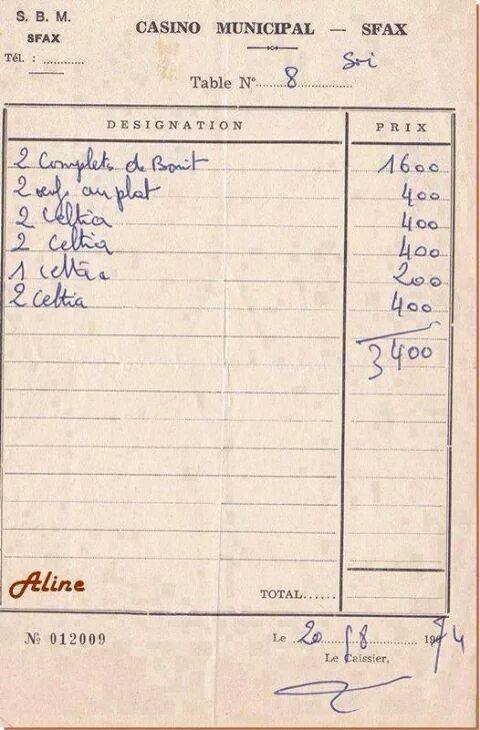 S. B. M.
SFAX
Tél. : ............
CASINO MUNICIPAL — SFAX
Table N° 8
DESIGNATION PRIX
2 Complets de 1600
2 oeufs au plat 400
2 Celtia 400
2 Celtia 400
1 Celtia 200
2 Celtia 400
3400
Aline
TOTAL......
№ 012009
Le 20/8 1974
Le Caissier,